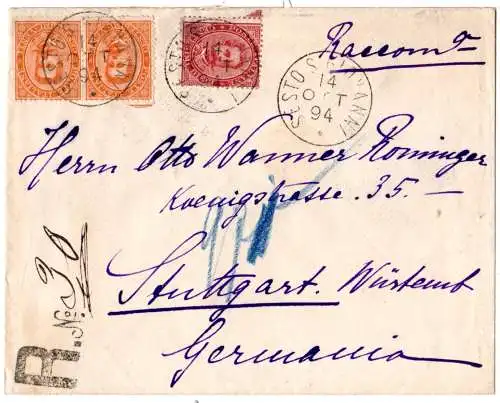 Raccomta
SESTO S. GIOVANNI
14
OTT
94
Herrn Otto Wanner Rominger
Koenigstrasse. 35. –
Stuttgart. Würtemb
Germania
R. No. 30